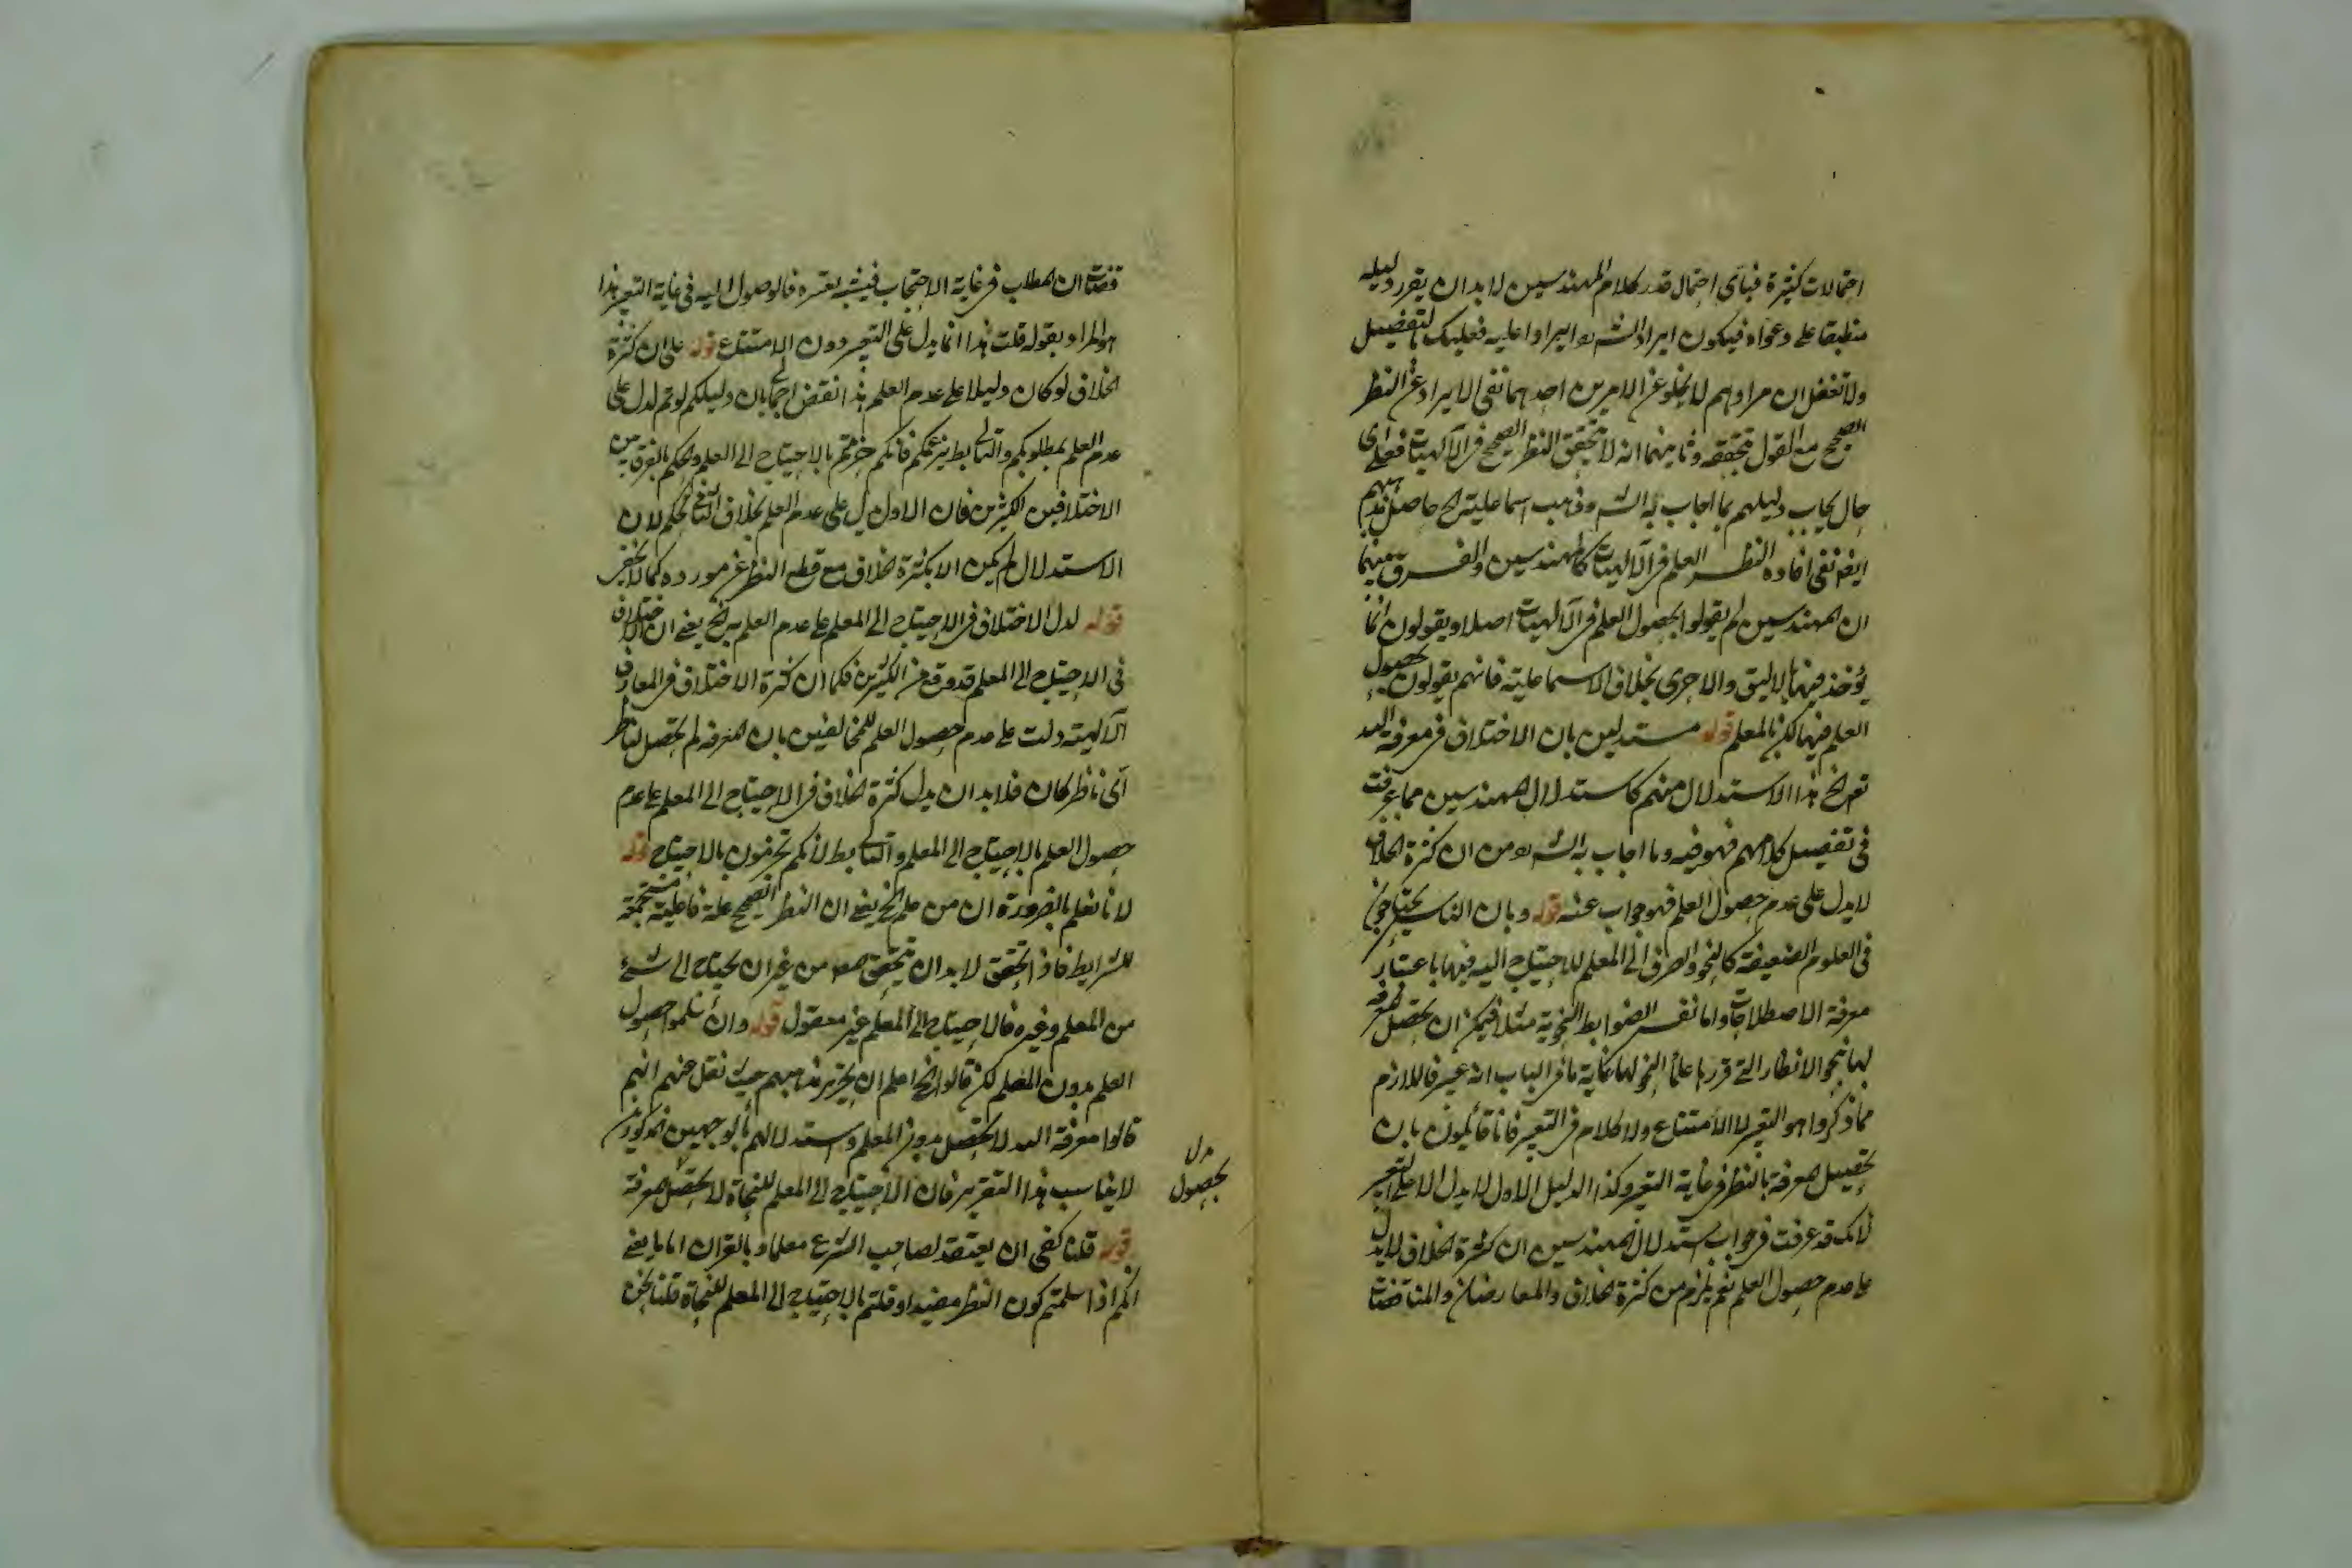 احتمالات كثيرة فبأى احتمال قدر كلام المهندسين لا بد ان يقرر دليله
منطبقا على دعواه فيكون ايراد الش ره ايرادا عليه فعليك بالتفصيل
ولا تغفل ان مرادهم لا يخلو عن الامرين احدهما نفى الايراد عن النظر
الصحيح مع القول بتحققه وثانيهما انه لا يتحقق النظر الصحيح فى الآلهيات فعلى اى
حال يجاب دليلهم بما اجاب به الش وذهب اسماعلية الخ حاصل مذهبهم
ايضا نفى افادة النظر العلم فى الآلهيات كالمهندسين والفرق بينهما
ان المهندسين لم يقولوا بحصول العلم فى الآلهيات اصلا ويقولون انما
يؤخذ فيها بالاليق والاحرى بخلاف الاسماعلية فانهم يقولون بحصول
العلم فيها لكن بالمعلم قوله مستدلين بان الاختلاف فى معرفة الله
تعالى الخ هذا الاستدلال منهم كاستدلال المهندسين مما عرفت
فى تفصيل كلامهم فهو فيه وما اجاب به الش ره من ان كثرة الخلاف
لا يدل على عدم حصول العلم فهو جواب عنه قوله وبان الناس يحتاجون
فى العلوم الضعيفة كالنحو والصرف الى المعلم للاحتياج اليه فيها باعتبار
معرفة الاصطلاحات واما نفس الضوابط النحوية مثلا فيمكن ان يحصل المعرفة
لها بنحو الانظار التى قررها علماء النحو لها غاية ما فى الباب انه عسير فاللازم
مما ذكروا هو التعسر لا الامتناع ولا كلام فى التعسر فانا قائلون بان
تحصيل المعرفة بالنظر فى غاية التعسر وكذا الدليل الاول لا يدل الا على التعسر
لانك قد عرفت فى جواب استدلال المهندسين ان كثرة الخلاف لا يدل
على عدم حصول العلم نعم يلزم من كثرة الخلاف والمعارضات والمناقضات
ان المطلب فى غاية الاحتجاب فالوصول اليه فى غاية التعسر هذا
هو المراد بقوله قلت هذا انما يدل على التعسر دون الامتناع قوله على ان كثرة
الخلاف لو كان دليلا على عدم العلم هذا نقض اجمالى بان دليلكم لو تم لدل على
عدم العلم بمطلوبكم والتالى بط بزعمكم فانكم جزمتم بالاحتياج الى العلم والحكم بالفرق بين
الاختلافين الكثيرين فان الاول دل على عدم العلم بخلاف الثانى تحكم لان
الاستدلال لم يكن الا بكثرة الخلاف مع قطع النظر عن مورده كما لا يخفى
قوله لدل الاختلاف فى الاحتياج الى المعلم على عدم العلم به الخ يعنى ان الاختلاف
فى الاحتياج الى المعلم قد وقع من الكثيرين فكما ان كثرة الاختلاف فى المعارف
الآلهية دلت على عدم حصول العلم للمخالفين بان المعرفة لم يحصل لناظر
اى ناظر كان فلا بد ان يدل كثرة الخلاف فى الاحتياج الى المعلم على عدم
حصول العلم بالاحتياج الى المعلم والتالى بط لانكم تجزمون بالاحتياج قوله
لانا نعلم بالضرورة ان من علم الخ يعنى ان النظر الصحيح علة فاعلية مستجمعة
للشرايط فاذا تحقق لا بد ان يتحقق معه من غير ان يحتاج الى شئ
من المعلم وغيره فالاحتياج الى المعلم غير معقول قوله وان سلموا حصول
العلم بدون المعلم لكن قالوا الخ اعلم ان تحرير مذهبهم حيث نقل عنهم انهم
قالوا معرفة الله لا تحصل بدون المعلم واستدلالهم بالوجهين المذكورين
لا يناسب هذا التقرير فان الاحتياج الى المعلم للنجاة لا لتحصل المعرفة
قوله قلنا كفى ان يعتقد لصاحب الشرع معلما وبالقران اماما يعنى
انكم اذا سلمتم كون النظر مفيدا وقلتم بالاحتياج الى المعلم للنجاة قلنا نحن
بحصول